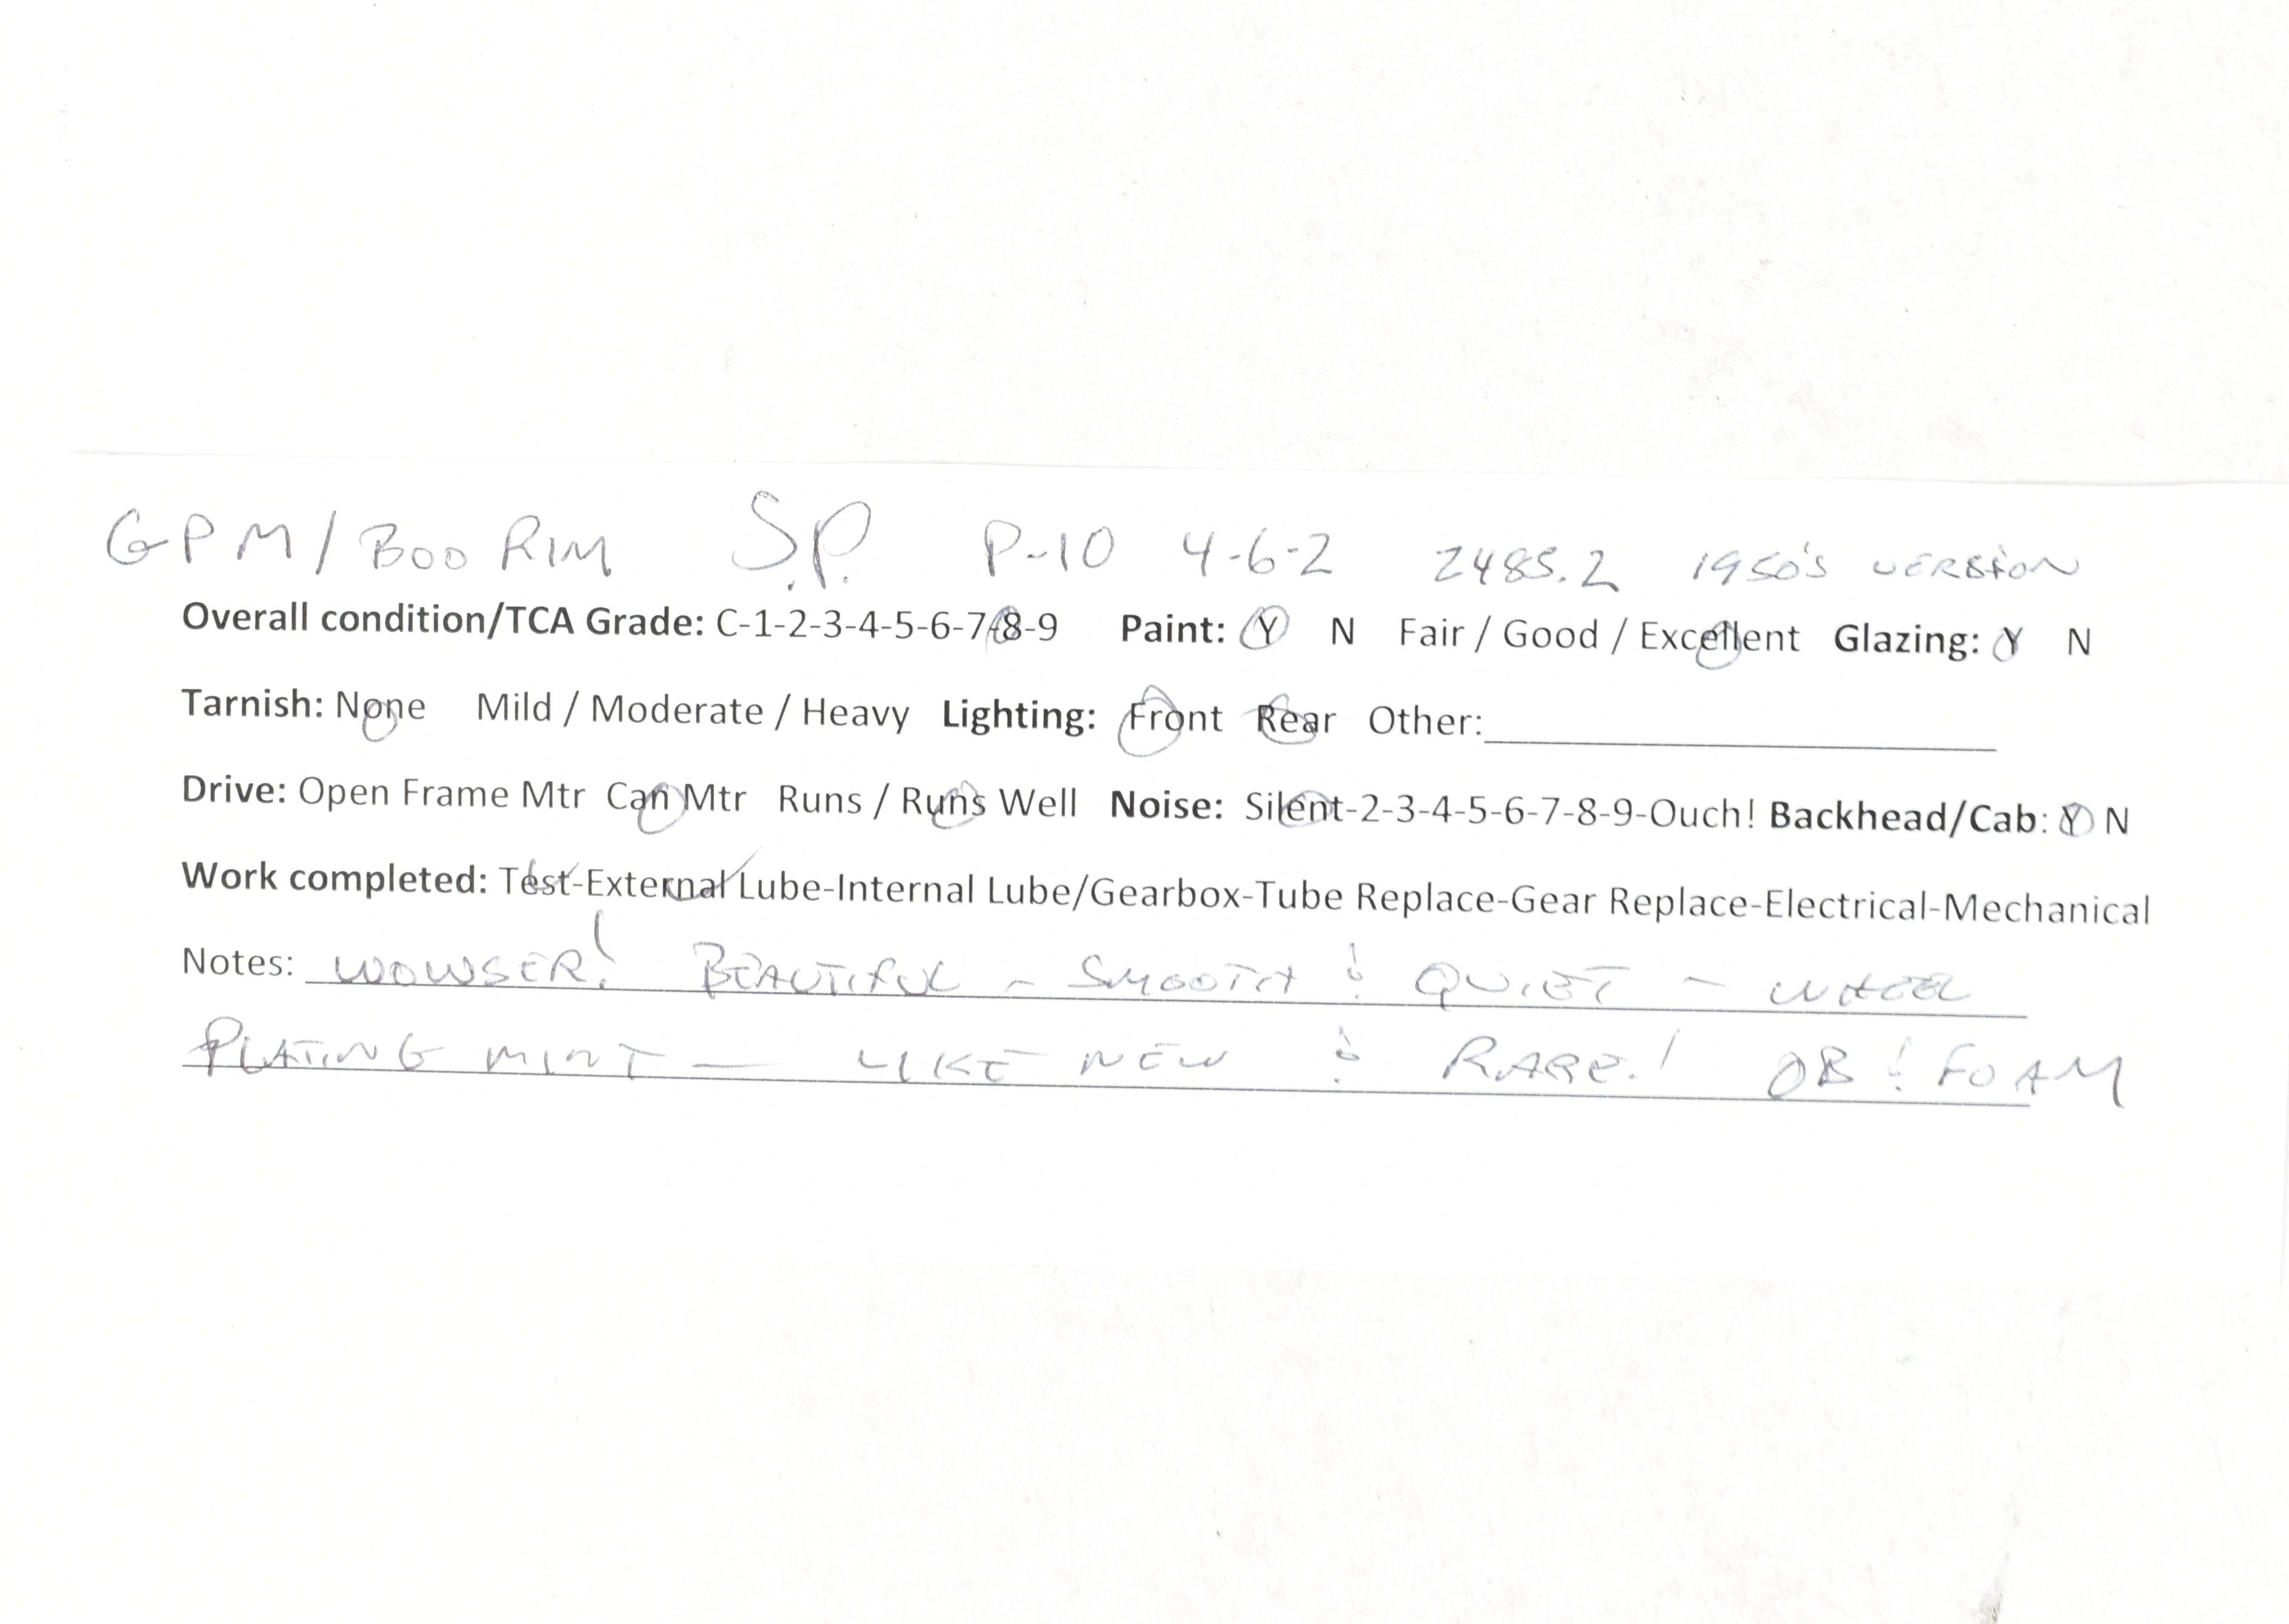 GPM/BOO RIM S.P. P-10 4-6-2 2485.2 1950's VERSION
Overall condition/TCA Grade: C-1-2-3-4-5-6-7-8-9 Paint: Y N Fair / Good / Excellent Glazing: Y N
Tarnish: None Mild / Moderate / Heavy Lighting: Front Rear Other:
Drive: Open Frame Mtr Can Mtr Runs / Runs Well Noise: Silent-2-3-4-5-6-7-8-9-Ouch! Backhead/Cab: Y N
Work completed: Test-External Lube-Internal Lube/Gearbox-Tube Replace-Gear Replace-Electrical-Mechanical
Notes: WOWSER! BEAUTIFUL - SMOOTH & QUIET - WHEEL
PLATING MINT — LIKE NEW & RARE! OB & FOAM